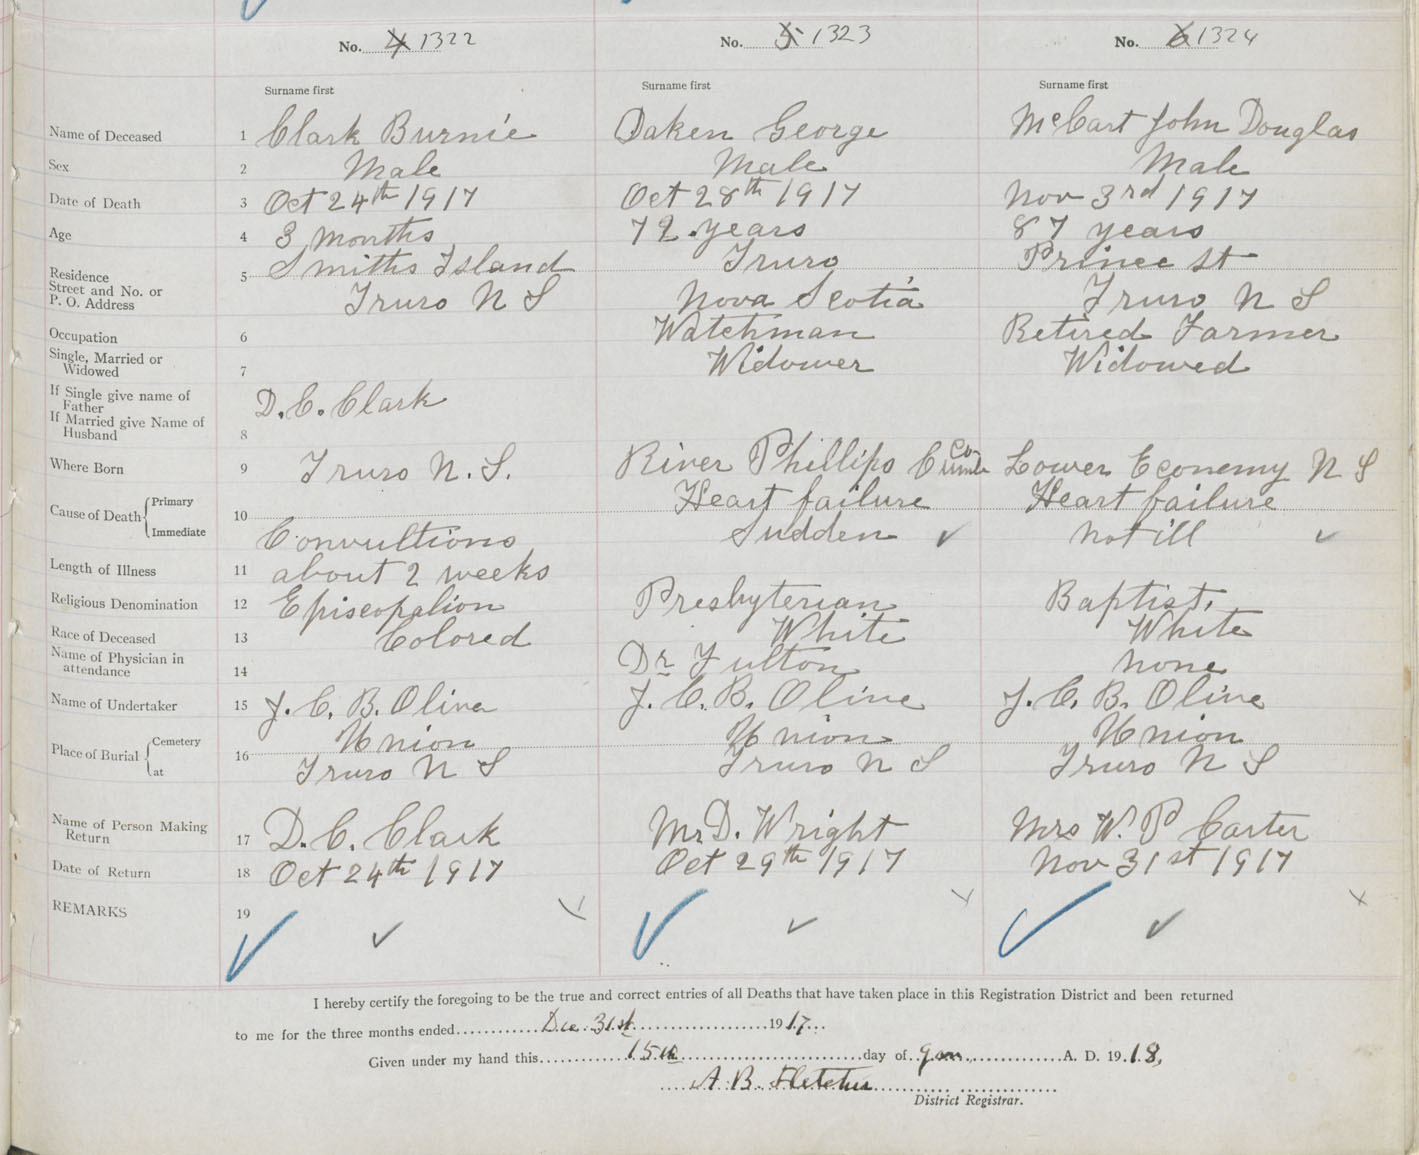 No. 4 1322 No. 5 1323 No. 6 1324
Surname first Surname first Surname first
Name of Deceased 1 Clark Burnie Daken George McCart John Douglas
Sex 2 Male Male Male
Date of Death 3 Oct 24th 1917 Oct 28th 1917 Nov 3rd 1917
Age 4 3 months 72 years 87 years
Residence 5 Smiths Island Truro Prince St
Street and No. or
P. O. Address Truro N S Nova Scotia Truro N S
Occupation 6 Watchman Retired Farmer
Single, Married or
Widowed 7 Widower Widowed
If Single give name of
Father D. C. Clark
If Married give Name of
Husband 8
Where Born 9 Truro N. S. River Phillips Cumb Co Lower Economy N S
Cause of Death Primary 10 Heart failure Heart failure
Immediate Convultions Sudden not ill
Length of Illness 11 about 2 weeks
Religious Denomination 12 Episcopalion Presbyterian Baptist.
Race of Deceased 13 Colored White White
Name of Physician in
attendance 14 Dr Fulton none
Name of Undertaker 15 J. C. B. Olive J. C. B. Olive J. C. B. Olive
Place of Burial Cemetery 16 Union Union Union
at Truro N S Truro N S Truro N S
Name of Person Making
Return 17 D. C. Clark Mr D. Wright Mrs W. P Carter
Date of Return 18 Oct 24th 1917 Oct 29th 1917 Nov 31st 1917
REMARKS 19
I hereby certify the foregoing to be the true and correct entries of all Deaths that have taken place in this Registration District and been returned
to me for the three months ended Dec 31st 1917
Given under my hand this 15th day of Jan A. D. 1918,
A. B. Fletcher
District Registrar.